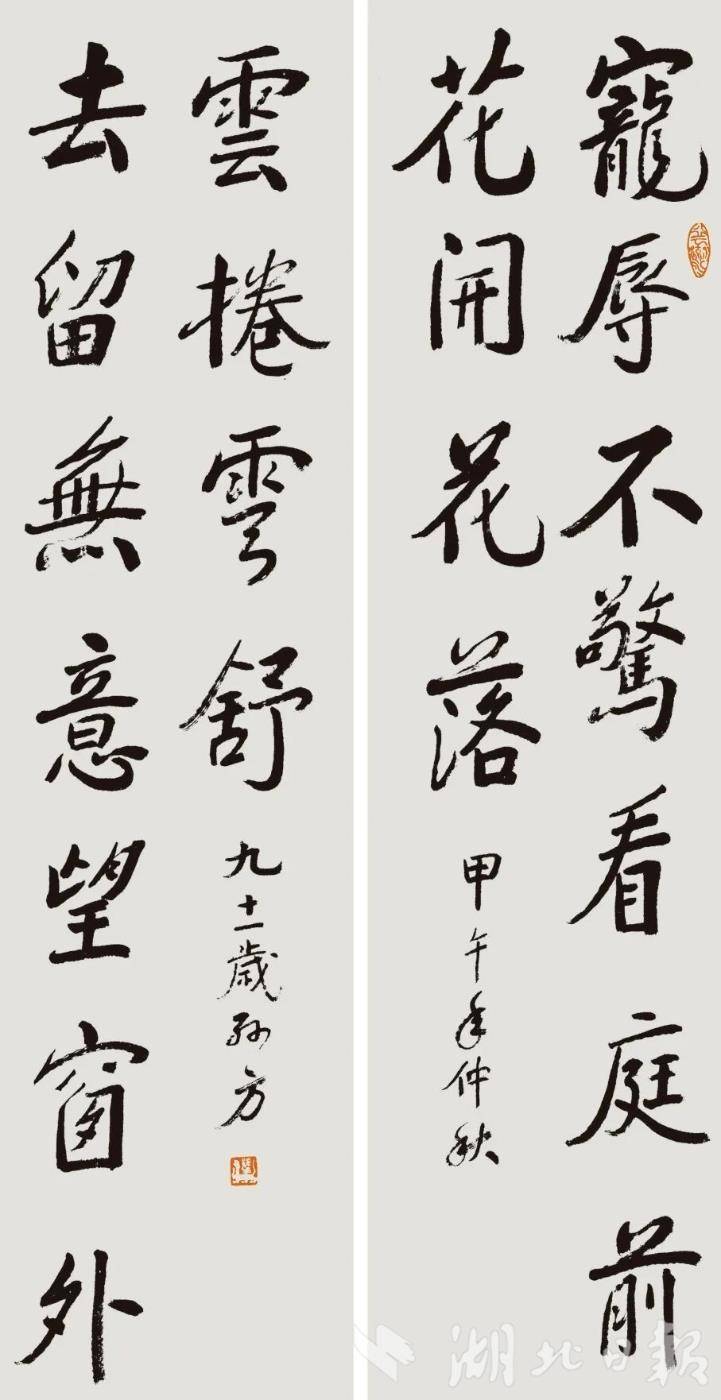 寵辱不驚看庭前
花开花落
甲午年仲秋
去留無意望窗外
雲捲雲舒
九十一歲孫方
湖北日報